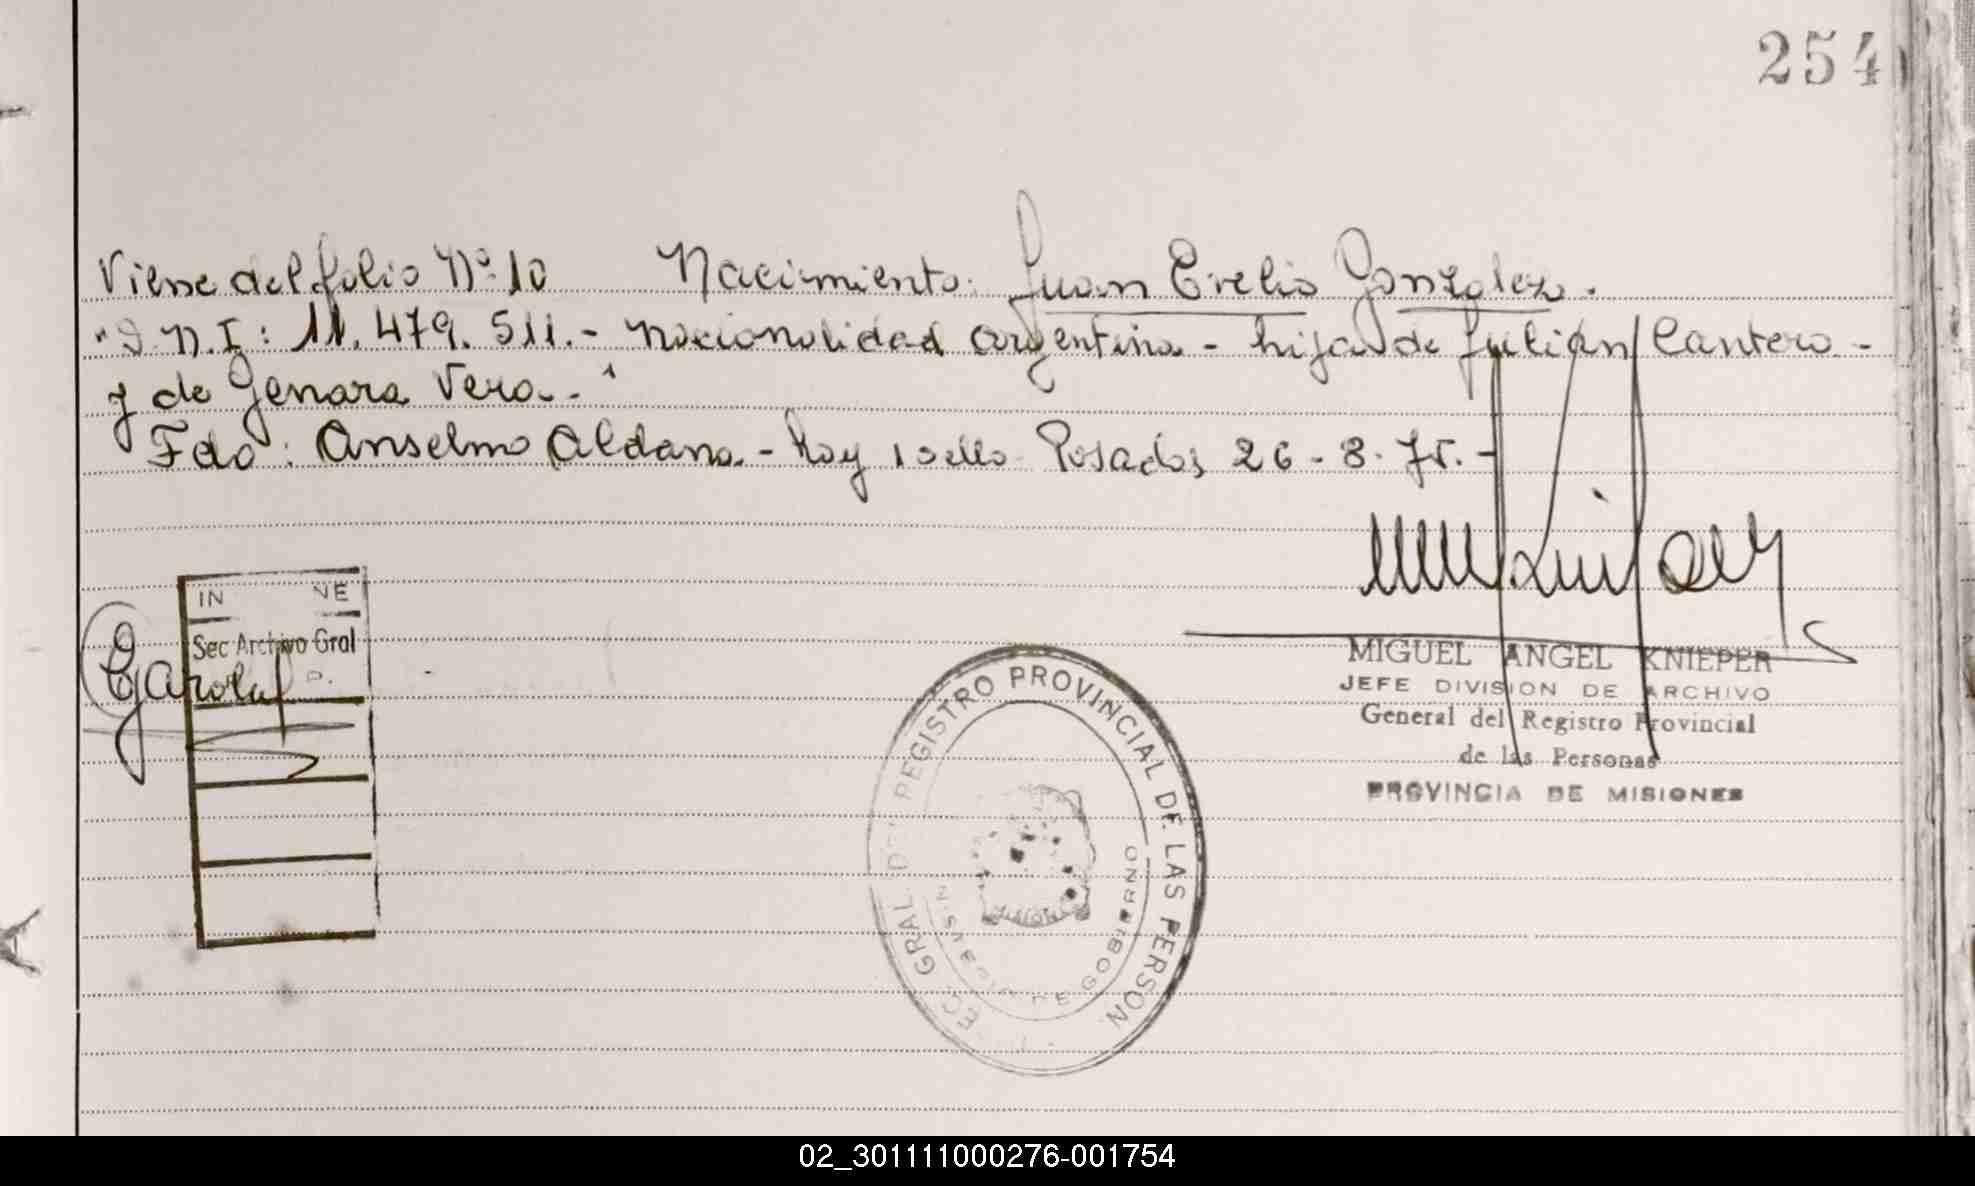 254
Viene del folio Nº 10 Nacimiento: Juan Evelio Gonzalez.
"D.N.I: 11.479.511.- nacionalidad argentina - hija de Julián Cantero -
y de Genara Vera.-"
Fdo: Anselmo Aldana.- Hay 1 sello Posadas 26-8-75.-
IN NE
Sec Archivo Gral
MIGUEL ANGEL KNIEPER
JEFE DIVISION DE ARCHIVO
General del Registro Provincial
de las Personas
PROVINCIA DE MISIONES
GRAL. DEL REGISTRO PROVINCIAL DE LAS PERSON
DE GOBIERNO
02_301111000276-001754